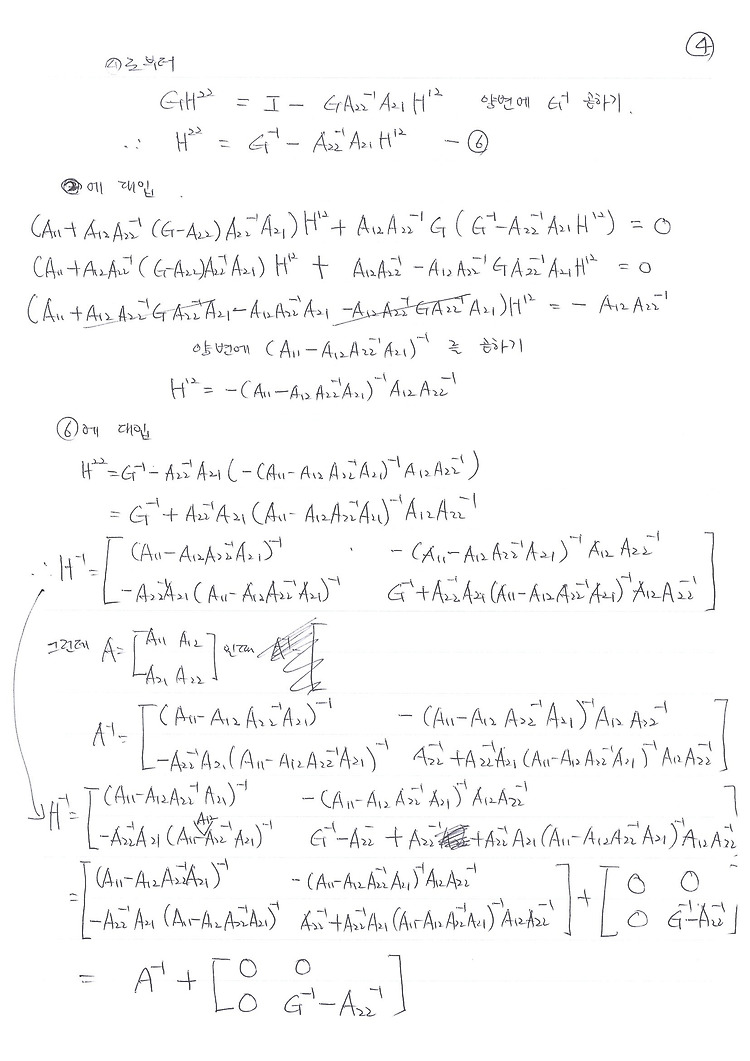 ④
④로부터
GH²² = I - GA₂₂⁻¹A₂₁H¹² 양변에 G⁻¹ 곱하기.
∴ H²² = G⁻¹ - A₂₂⁻¹A₂₁H¹² - ⑥
②에 대입.
(A₁₁ + A₁₂A₂₂⁻¹(G-A₂₂)A₂₂⁻¹A₂₁)H¹² + A₁₂A₂₂⁻¹G(G⁻¹-A₂₂⁻¹A₂₁H¹²) = 0
(A₁₁ + A₁₂A₂₂⁻¹(G-A₂₂)A₂₂⁻¹A₂₁)H¹² + A₁₂A₂₂⁻¹ - A₁₂A₂₂⁻¹GA₂₂⁻¹A₂₁H¹² = 0
(A₁₁ + A₁₂A₂₂⁻¹GA₂₂⁻¹A₂₁ - A₁₂A₂₂⁻¹A₂₁ - A₁₂A₂₂⁻¹GA₂₂⁻¹A₂₁)H¹² = - A₁₂A₂₂⁻¹
양변에 (A₁₁ - A₁₂A₂₂⁻¹A₂₁)⁻¹ 를 곱하기
H¹² = -(A₁₁ - A₁₂A₂₂⁻¹A₂₁)⁻¹A₁₂A₂₂⁻¹
⑥에 대입
H²² = G⁻¹ - A₂₂⁻¹A₂₁(-(A₁₁ - A₁₂A₂₂⁻¹A₂₁)⁻¹A₁₂A₂₂⁻¹)
= G⁻¹ + A₂₂⁻¹A₂₁(A₁₁ - A₁₂A₂₂⁻¹A₂₁)⁻¹A₁₂A₂₂⁻¹
∴ H⁻¹ = [ (A₁₁ - A₁₂A₂₂⁻¹A₂₁)⁻¹ -(A₁₁ - A₁₂A₂₂⁻¹A₂₁)⁻¹A₁₂A₂₂⁻¹
-A₂₂⁻¹A₂₁(A₁₁ - A₁₂A₂₂⁻¹A₂₁)⁻¹ G⁻¹ + A₂₂⁻¹A₂₁(A₁₁ - A₁₂A₂₂⁻¹A₂₁)⁻¹A₁₂A₂₂⁻¹ ]
그런데 A = [ A₁₁ A₁₂
A₂₁ A₂₂ ] 인데
A⁻¹ = [ (A₁₁ - A₁₂A₂₂⁻¹A₂₁)⁻¹ -(A₁₁ - A₁₂A₂₂⁻¹A₂₁)⁻¹A₁₂A₂₂⁻¹
-A₂₂⁻¹A₂₁(A₁₁ - A₁₂A₂₂⁻¹A₂₁)⁻¹ A₂₂⁻¹ + A₂₂⁻¹A₂₁(A₁₁ - A₁₂A₂₂⁻¹A₂₁)⁻¹A₁₂A₂₂⁻¹ ]
H⁻¹ = [ (A₁₁ - A₁₂A₂₂⁻¹A₂₁)⁻¹ -(A₁₁ - A₁₂A₂₂⁻¹A₂₁)⁻¹A₁₂A₂₂⁻¹
-A₂₂⁻¹A₂₁(A₁₁ - A₁₂A₂₂⁻¹A₂₁)⁻¹ G⁻¹ - A₂₂⁻¹ + A₂₂⁻¹ + A₂₂⁻¹A₂₁(A₁₁ - A₁₂A₂₂⁻¹A₂₁)⁻¹A₁₂A₂₂⁻¹ ]
= [ (A₁₁ - A₁₂A₂₂⁻¹A₂₁)⁻¹ -(A₁₁ - A₁₂A₂₂⁻¹A₂₁)⁻¹A₁₂A₂₂⁻¹ ] + [ 0 0
-A₂₂⁻¹A₂₁(A₁₁ - A₁₂A₂₂⁻¹A₂₁)⁻¹ A₂₂⁻¹ + A₂₂⁻¹A₂₁(A₁₁ - A₁₂A₂₂⁻¹A₂₁)⁻¹A₁₂A₂₂⁻¹ ] 0 G⁻¹ - A₂₂⁻¹ ]
= A⁻¹ + [ 0 0
0 G⁻¹ - A₂₂⁻¹ ]